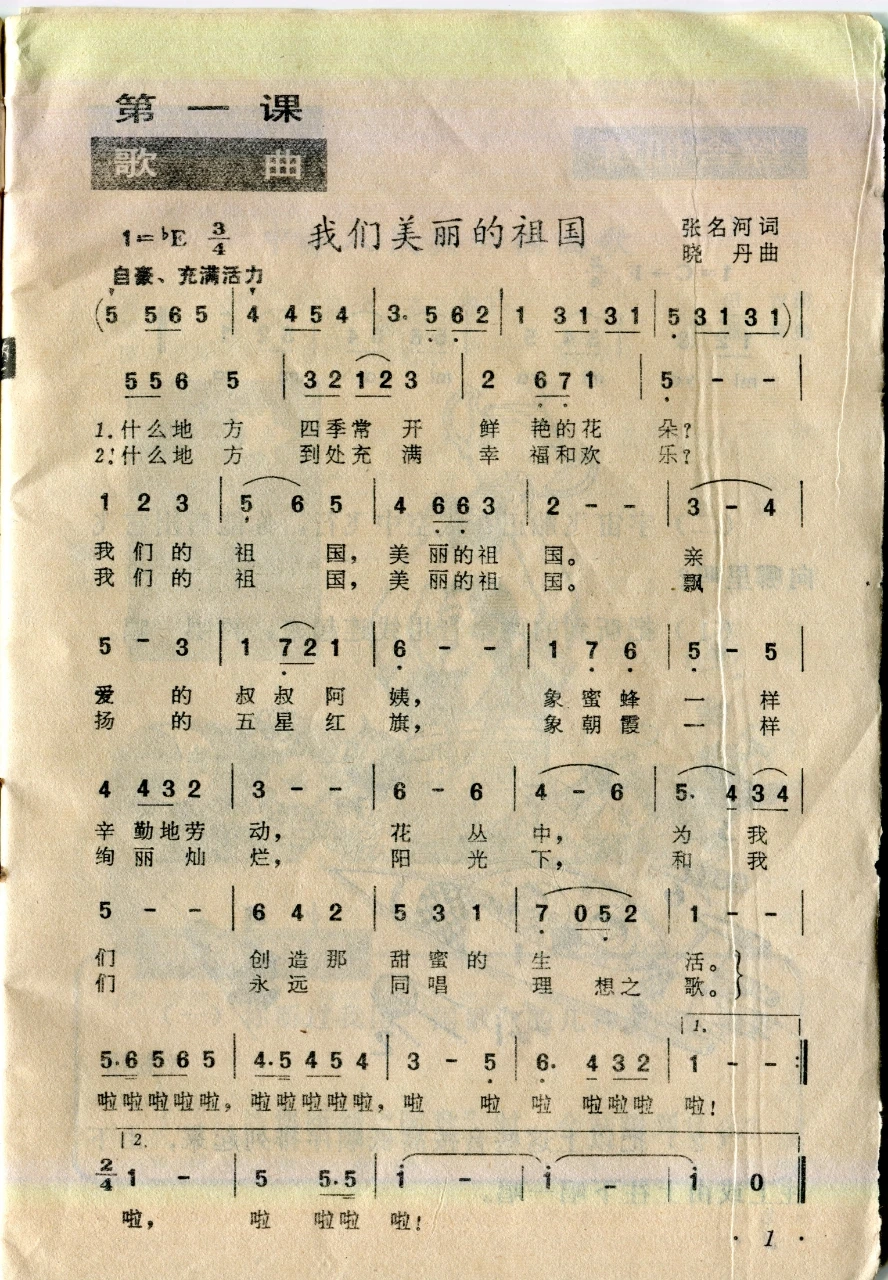 第一课
歌曲
1=♭E 3/4 我们美丽的祖国 张名河词
晓丹曲
自豪、充满活力
(5 56 5 | 4 45 4 | 3· 5 6 2 | 1 31 31 | 5 31 31) |
55 6 5 | 32 12 3 | 2 67 1 | 5 - - |
1.什么地方 四季常开 鲜艳的花朵?
2.什么地方 到处充满 幸福和欢乐?
1 2 3 | 5 6 5 | 4 66 3 | 2 - - | 3 - 4 |
我们的祖国,美丽的祖国。 亲
我们的祖国,美丽的祖国。 飘
5 - 3 | 1 72 1 | 6 - - | 1 7 6 | 5 - 5 |
爱的叔叔阿姨, 象蜜蜂一样
扬的五星红旗, 象朝霞一样
4 43 2 | 3 - - | 6 - 6 | 4 - 6 | 5· 4 34 |
辛勤地劳动, 花丛中, 为我
绚丽灿烂, 阳光下, 和我
5 - - | 6 4 2 | 5 3 1 | 7 05 2 | 1 - - |
们 创造那甜蜜的生活。
们 永远同唱理想之歌。
1.
5·6 56 5 | 4·5 45 4 | 3 - 5 | 6· 4 32 | 1 - - :|
啦啦啦啦啦,啦啦啦啦啦,啦 啦 啦 啦啦啦 啦!
2.
2/4 1 - | 5 5·5 | 1 - | 1 - | 1 0 |
啦, 啦 啦啦 啦!
· 1 ·